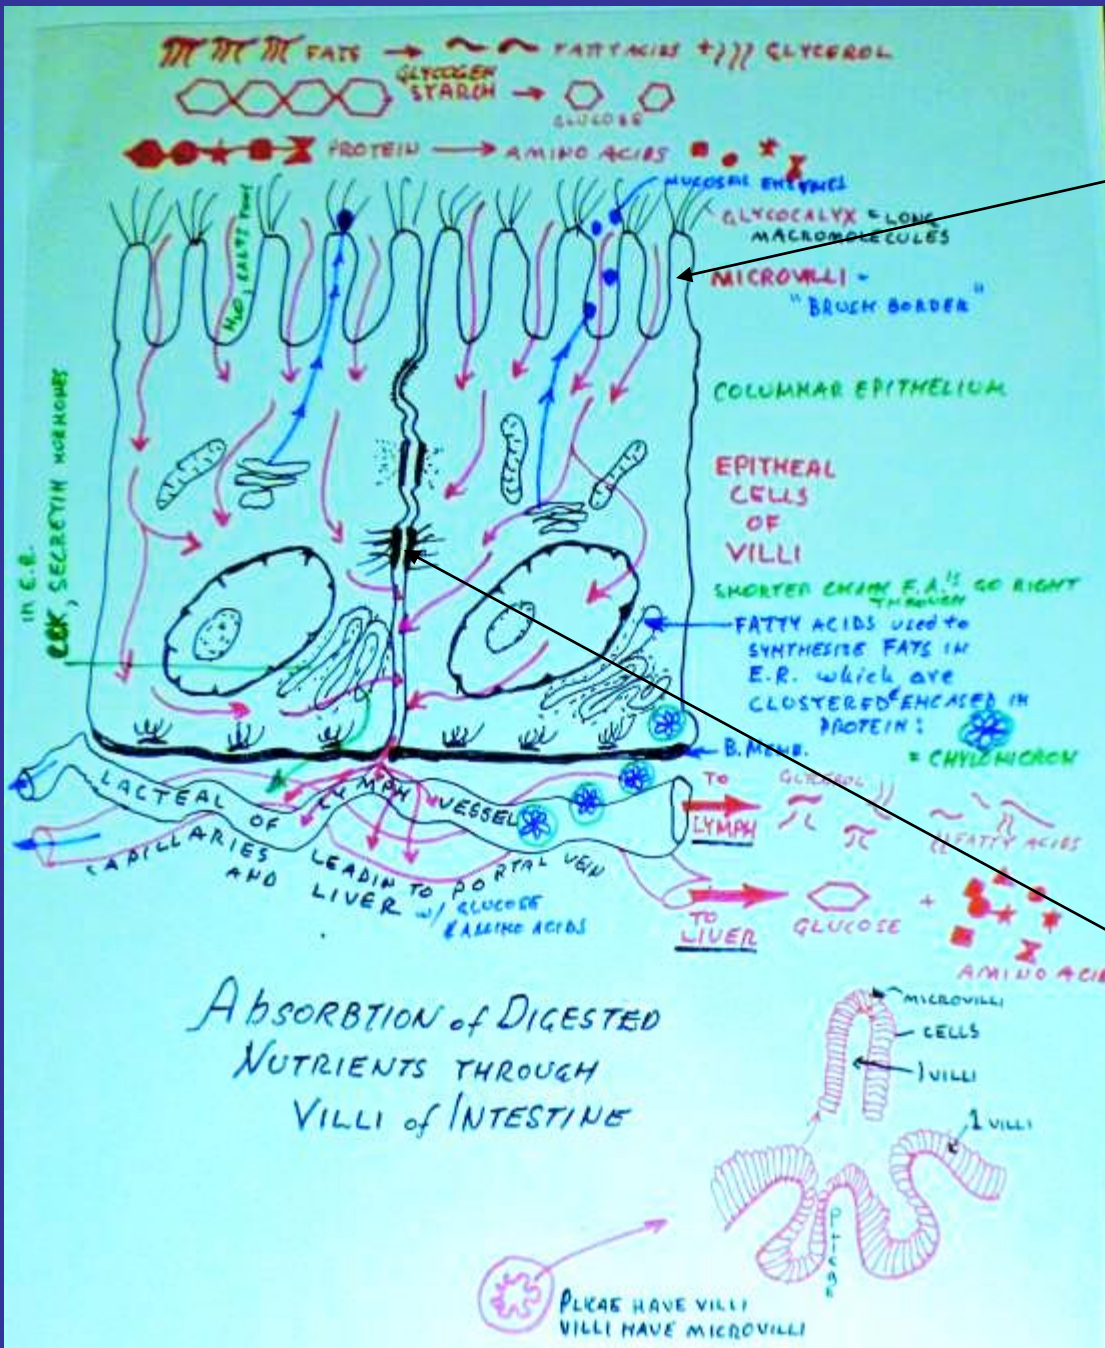 FATS → FATTY ACIDS + GLYCEROL
GLYCOGEN
STARCH →
GLUCOSE
PROTEIN → AMINO ACIDS
MUCOSAL ENZYMES
GLYCOCALYX = LONG
MACROMOLECULES
MICROVILLI -
"BRUSH BORDER"
COLUMNAR EPITHELIUM
EPITHEAL
CELLS
OF
VILLI
SHORTER CHAIN F.A.'S GO RIGHT
THROUGH
FATTY ACIDS used to
SYNTHESIZE FATS IN
E.R. which are
CLUSTERED & ENCASED IN
PROTEIN:
= CHYLOMICRON
B. MEMB.
H2O, SALTS
IN E.R.
CCK, SECRETIN HORMONES
LACTEAL OF LYMPH VESSEL
CAPILLARIES AND LEADIN TO PORTAL VEIN
LIVER w/ GLUCOSE
& AMINO ACIDS
TO
LYMPH
GLYCEROL
FATTY ACIDS
TO
LIVER
GLUCOSE +
AMINO ACID
ABSORBTION of DIGESTED
NUTRIENTS THROUGH
VILLI of INTESTINE
MICROVILLI
CELLS
) VILLI
1 VILLI
PLICAE
PLICAE HAVE VILLI
VILLI HAVE MICROVILLI